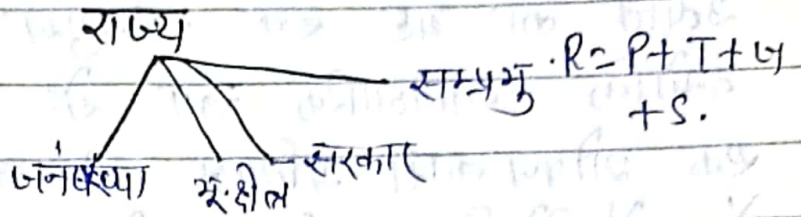 राज्य
सम्प्रभु . R = P + T + G
+ S.
जनसंख्या भू-क्षेत्र सरकार